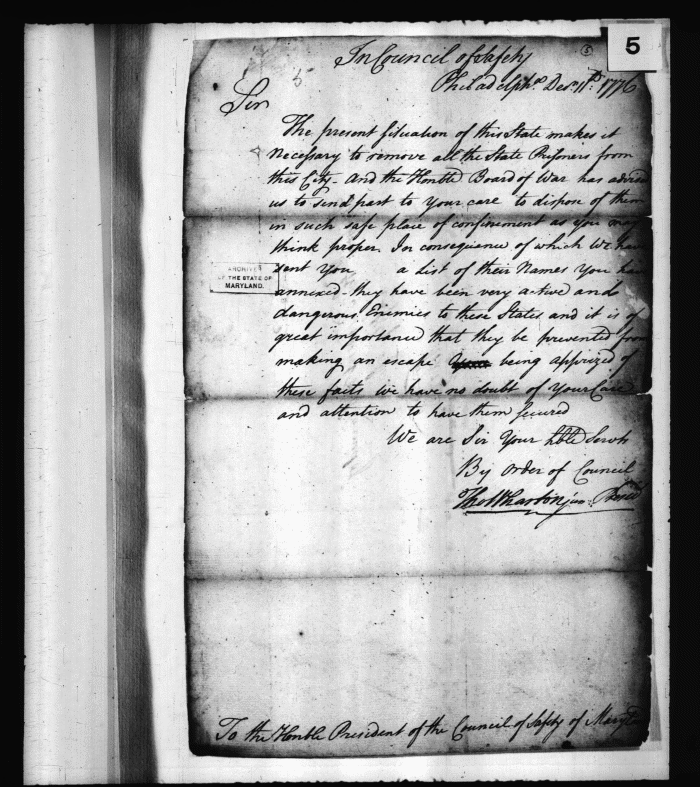 5
5
5
In Council of Safety
Philadelpha. Decr. 11th: 1776
Sir
The present Situation of this State makes it
necessary to remove all the State Prisoners from
this City - and the Honble Board of War has advised
us to send part to Your care to dispose of them
in such safe place of confinement as you may
think proper. In consequence of which We have
sent You a List of their Names You have
annexed - they have been very active and
dangerous Enemies to these States and it is of
great importance that they be prevented from
making an escape being apprized of
these facts we have no doubt of Your Care
and attention to have them secured
We are Sir Your hble Servts
By Order of Council
Tho Wharton jun: Presid
To the Honble President of the Council of Safety of Maryld
ARCHIVES
OF THE STATE OF
MARYLAND.